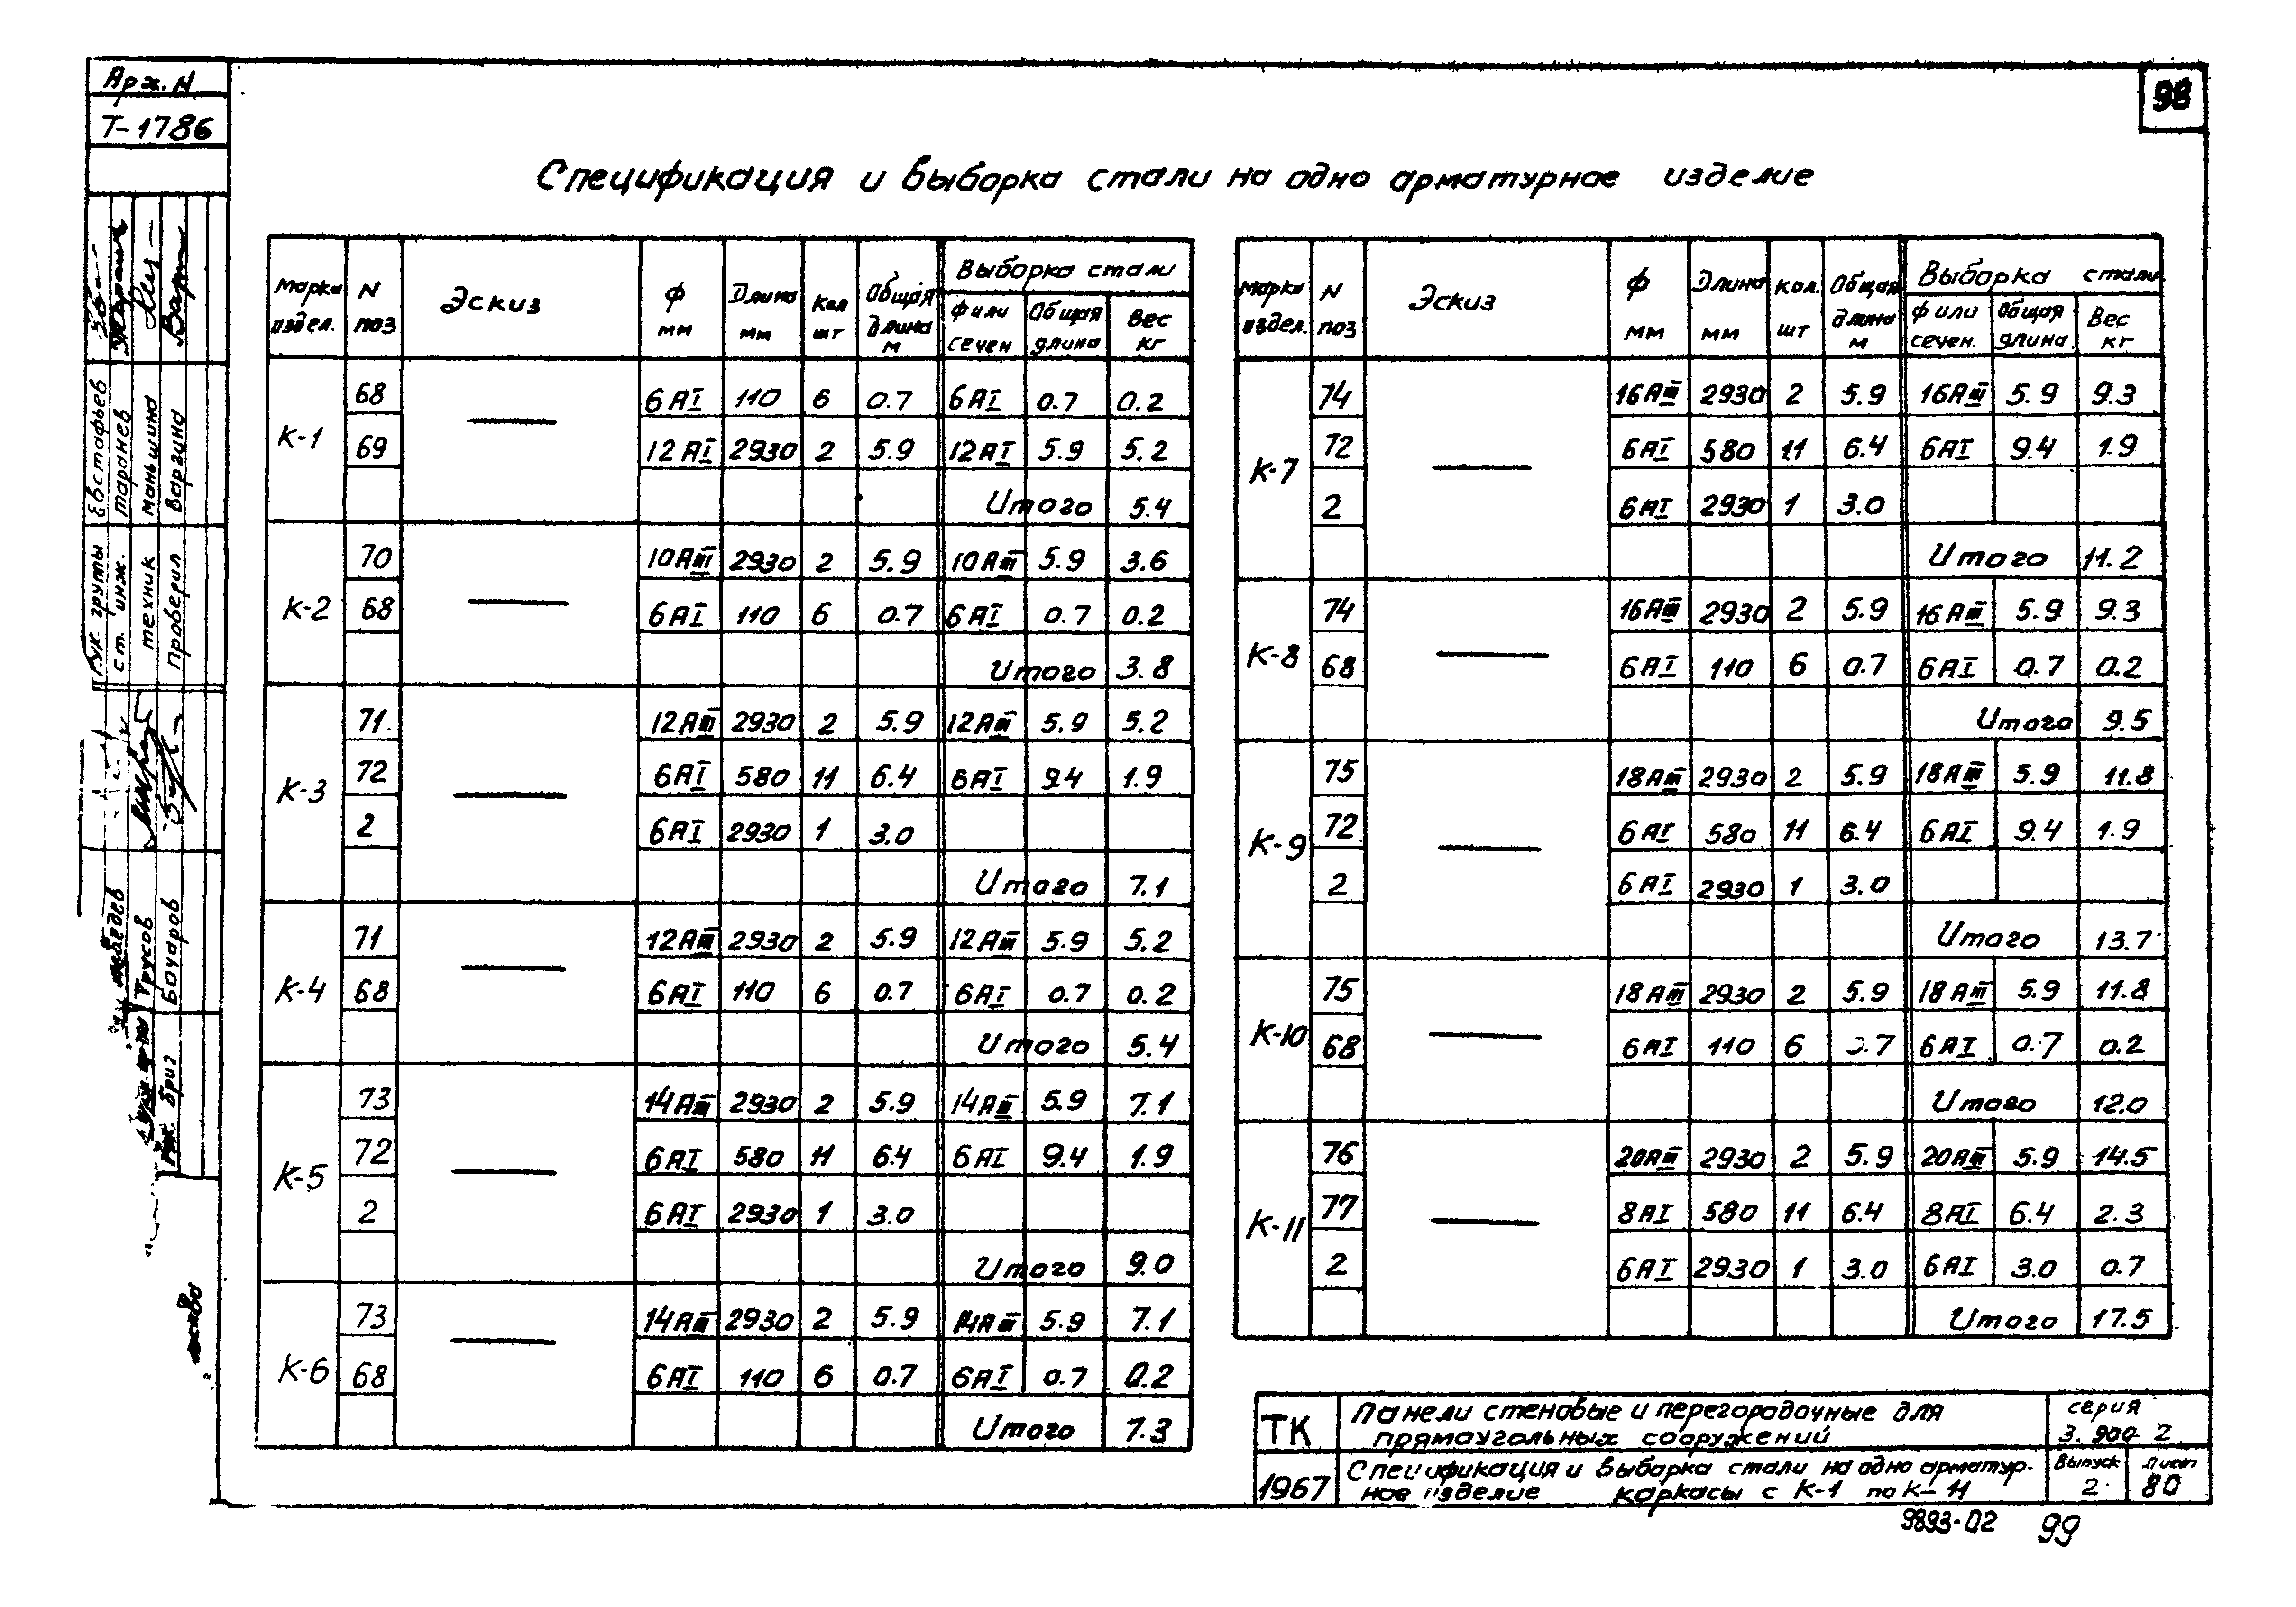 Арх. N
Т-1786
98
Спецификация и выборка стали на одно арматурное изделие
Марка издел. N поз Эскиз ф мм Длина мм Кол шт Общая длина м Выборка стали ф или сечен Общая длина Вес кг
К-1 68 6АI 110 6 0.7 6АI 0.7 0.2
69 12АI 2930 2 5.9 12АI 5.9 5.2
Итого 5.4
К-2 70 10АIII 2930 2 5.9 10АIII 5.9 3.6
68 6АI 110 6 0.7 6АI 0.7 0.2
Итого 3.8
К-3 71 12АIII 2930 2 5.9 12АIII 5.9 5.2
72 6АI 580 11 6.4 6АI 9.4 1.9
2 6АI 2930 1 3.0
Итого 7.1
К-4 71 12АIII 2930 2 5.9 12АIII 5.9 5.2
68 6АI 110 6 0.7 6АI 0.7 0.2
Итого 5.4
К-5 73 14АIII 2930 2 5.9 14АIII 5.9 7.1
72 6АI 580 11 6.4 6АI 9.4 1.9
2 6АI 2930 1 3.0
Итого 9.0
К-6 73 14АIII 2930 2 5.9 14АIII 5.9 7.1
68 6АI 110 6 0.7 6АI 0.7 0.2
Итого 7.3
Марка издел. N поз Эскиз ф мм Длина мм Кол. шт Общая длина м Выборка стали ф или сечен. Общая длина Вес кг
К-7 74 16АIII 2930 2 5.9 16АIII 5.9 9.3
72 6АI 580 11 6.4 6АI 9.4 1.9
2 6АI 2930 1 3.0
Итого 11.2
К-8 74 16АIII 2930 2 5.9 16АIII 5.9 9.3
68 6АI 110 6 0.7 6АI 0.7 0.2
Итого 9.5
К-9 75 18АIII 2930 2 5.9 18АIII 5.9 11.8
72 6АI 580 11 6.4 6АI 9.4 1.9
2 6АI 2930 1 3.0
Итого 13.7
К-10 75 18АIII 2930 2 5.9 18АIII 5.9 11.8
68 6АI 110 6 0.7 6АI 0.7 0.2
Итого 12.0
К-11 76 20АIII 2930 2 5.9 20АIII 5.9 14.5
77 8АI 580 11 6.4 8АI 6.4 2.3
2 6АI 2930 1 3.0 6АI 3.0 0.7
Итого 17.5
Рук. группы Евстафьев
ст. инж. Таронев
техник Маньшина
Проверил Варгина
Лебедев
Трусов
Рук. бриг Бочаров
ТК
1967
Панели стеновые и перегородочные для
прямоугольных сооружений
Спецификация и выборка стали на одно арматур-
ное изделие каркасы с К-1 по К-11
серия
3.900-2
Выпуск
2
Лист
80
9893-02 99